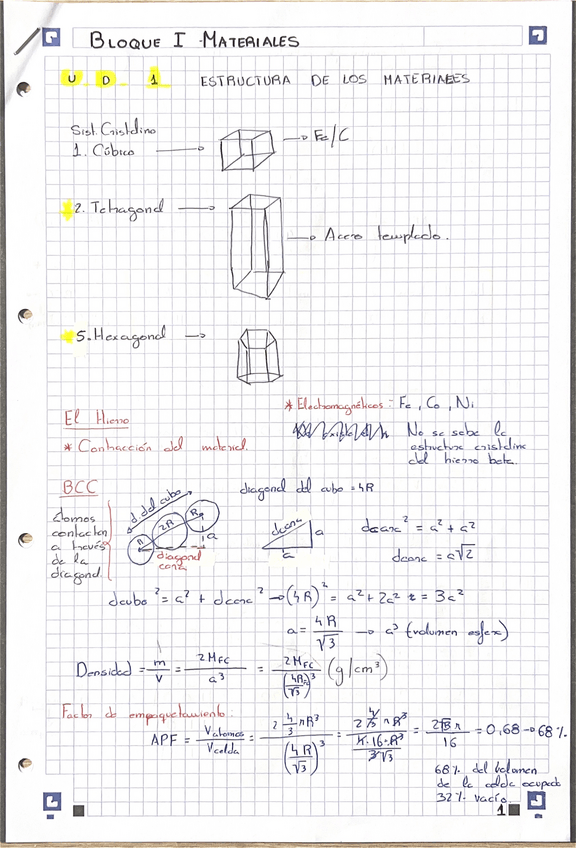 BLOQUE I MATERIALES
U D 1 ESTRUCTURA DE LOS MATERIALES
Sist. Cristalino
1. Cúbico → Fe/C
2. Tetragonal → Acero templado.
5. Hexagonal →
El Hierro
* Contracción del material.
* Electromagnéticos: Fe, Co, Ni
No se sabe la
estructura cristalina
del hierro beta.
BCC
átomos
contactan
a través
de la
diagonal.
d del cubo
R 2R R
a
diagonal
cara
diagonal del cubo = 4R
dcara a
a
dcara² = a² + a²
dcara = a√2
dcubo² = a² + dcara² → (4R)² = a² + 2a² = 3a²
a = 4R/√3 → a³ (volumen esfera)
Densidad = m/V = 2MFe/a³ = 2MFe/(4R/√3)³ (g/cm³)
Factor de empaquetamiento:
APF = Vatomos/Vcelda = 2 4/3 πR³/(4R/√3)³ = = 2√3 π/16 = 0,68 → 68%.
68% del volumen
de la celda ocupada
32% vacío.
1